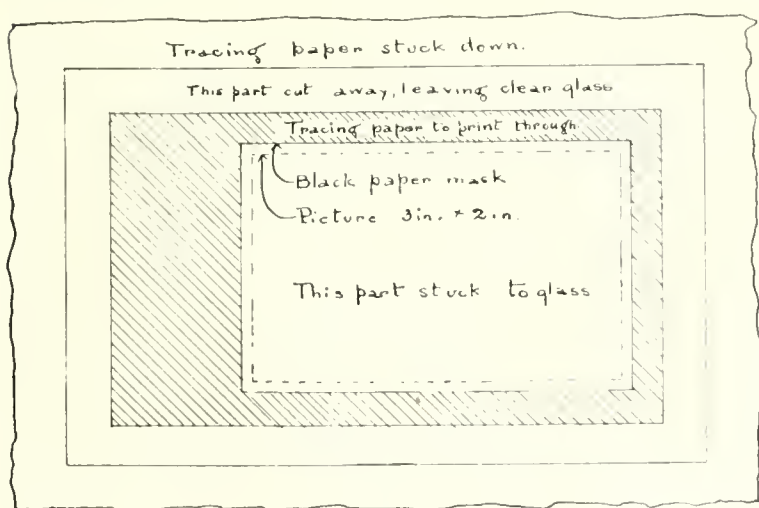 Tracing paper stuck down.
This part cut away, leaving clear glass
Tracing paper to print through
Black paper mask
Picture 3in. × 2in.
This part stuck to glass